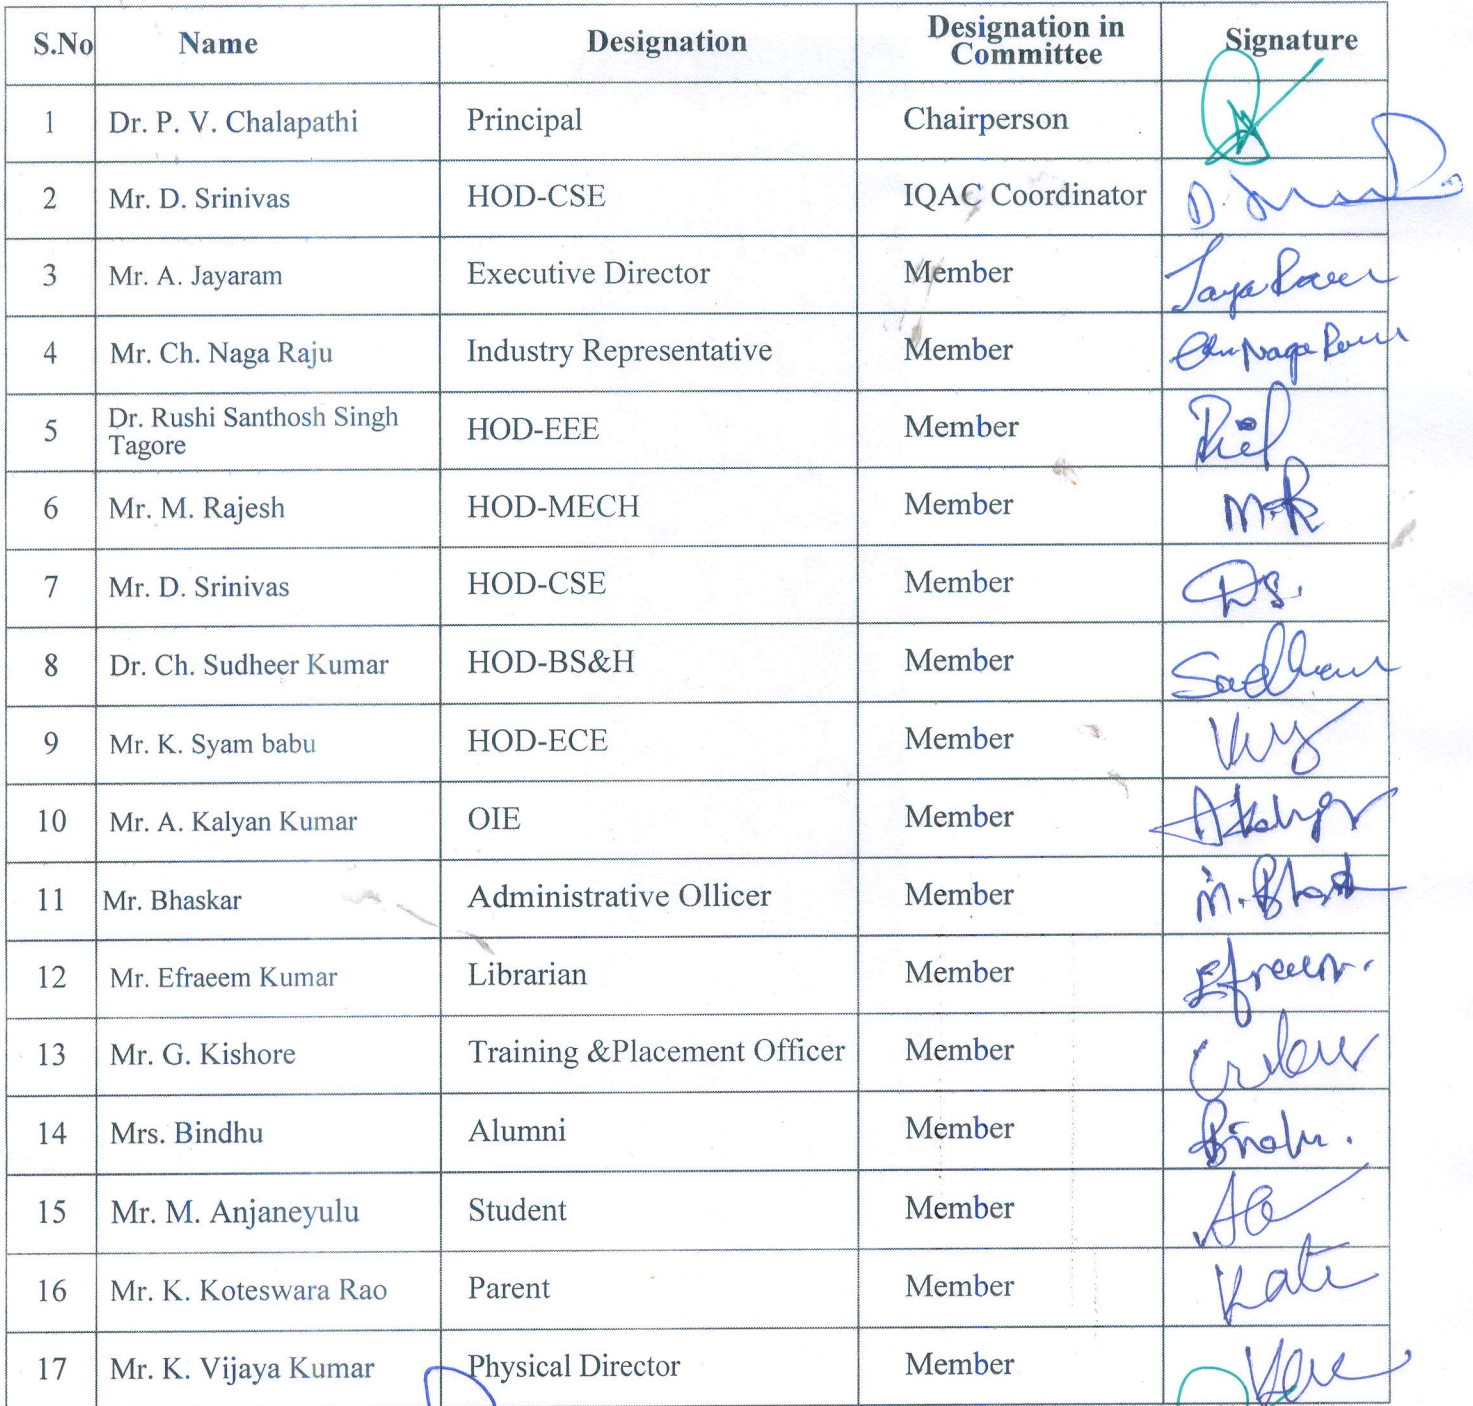 S.No Name Designation Designation in Committee Signature
1 Dr. P. V. Chalapathi Principal Chairperson
2 Mr. D. Srinivas HOD-CSE IQAC Coordinator
3 Mr. A. Jayaram Executive Director Member
4 Mr. Ch. Naga Raju Industry Representative Member
5 Dr. Rushi Santhosh Singh Tagore HOD-EEE Member
6 Mr. M. Rajesh HOD-MECH Member M.R
7 Mr. D. Srinivas HOD-CSE Member DS.
8 Dr. Ch. Sudheer Kumar HOD-BS&H Member
9 Mr. K. Syam babu HOD-ECE Member
10 Mr. A. Kalyan Kumar OIE Member
11 Mr. Bhaskar Administrative Ollicer Member
12 Mr. Efraeem Kumar Librarian Member
13 Mr. G. Kishore Training &Placement Officer Member
14 Mrs. Bindhu Alumni Member
15 Mr. M. Anjaneyulu Student Member
16 Mr. K. Koteswara Rao Parent Member
17 Mr. K. Vijaya Kumar Physical Director Member